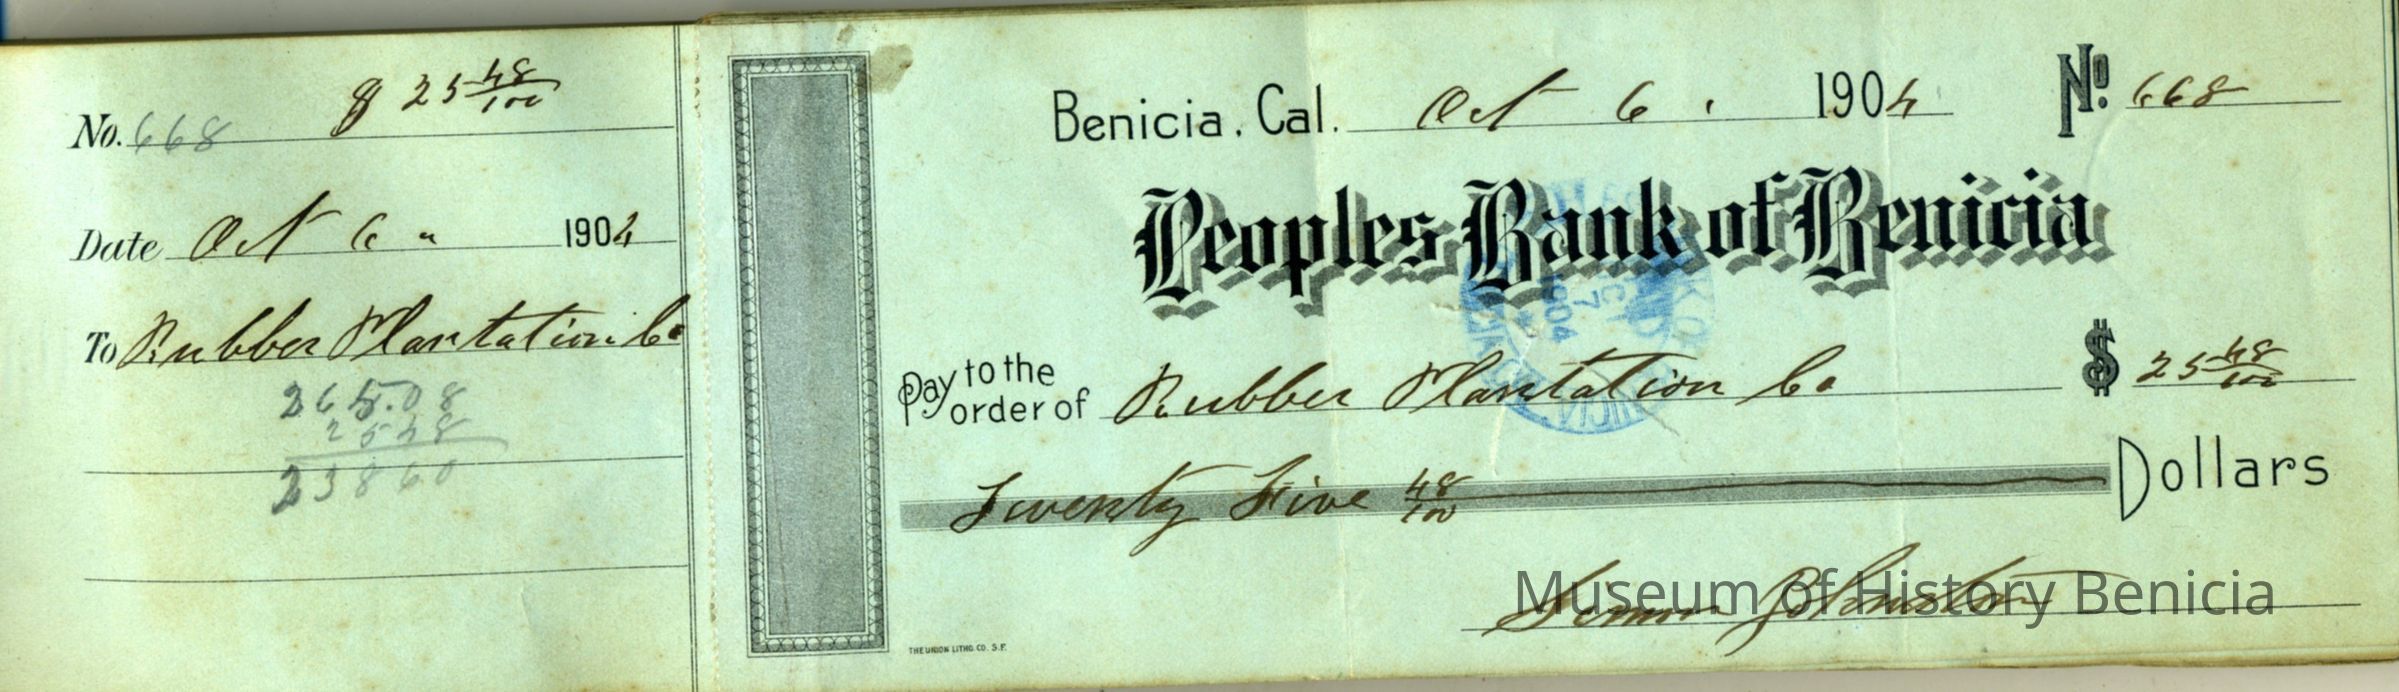 No. 668 $ 25 48/100
Date Oct 6 " 1904
To Rubber Plantation Co
264.08
25 48
238 60
Benicia, Cal. Oct 6, 1904 No. 668
Peoples Bank of Benicia
Pay to the order of Rubber Plantation Co $ 25 48/100
Twenty Five 48/100 Dollars
Johnston
THE UNION LITHO. CO. S.F.
OCT 7 1904
Museum of History Benicia